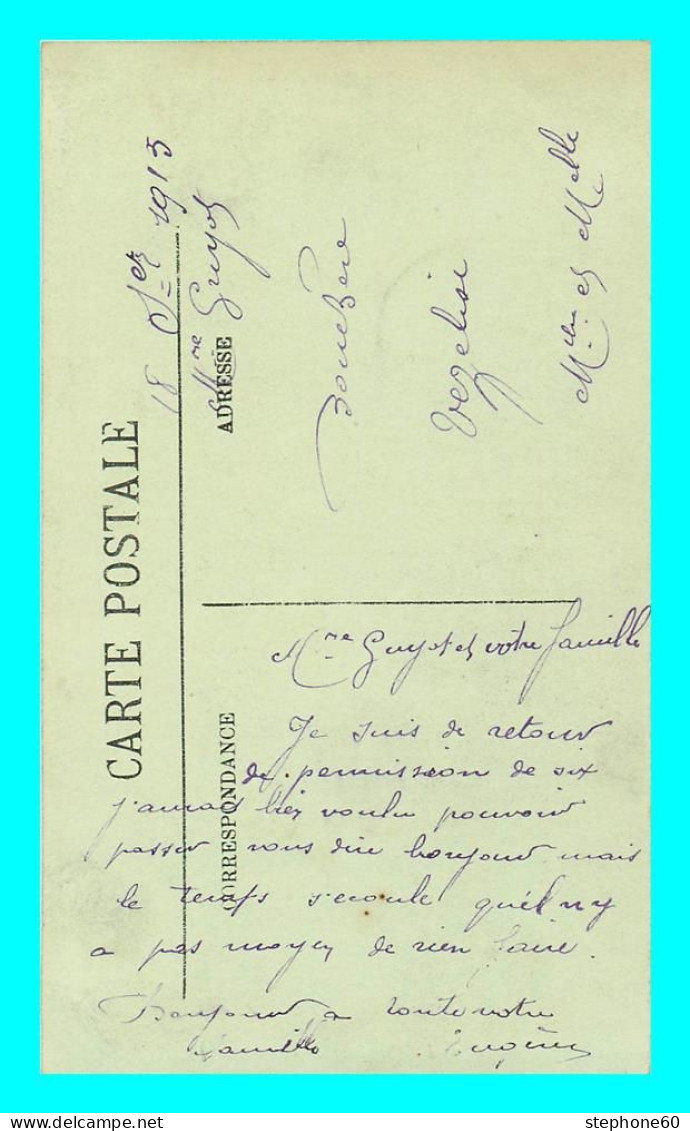 CARTE POSTALE
CORRESPONDANCE
ADRESSE
18 1915
Mme Guyot
Vezelise
Mme et Melle
Mme Guyot et votre famille
Je suis de retour
de permission de six
j'aurais bien voulu pouvoir
passer vous dire bonjour mais
le temps s'ecoule qu'il n'y
a pas moyen de rien faire.
Bonjour a toute votre
famille
stephone60